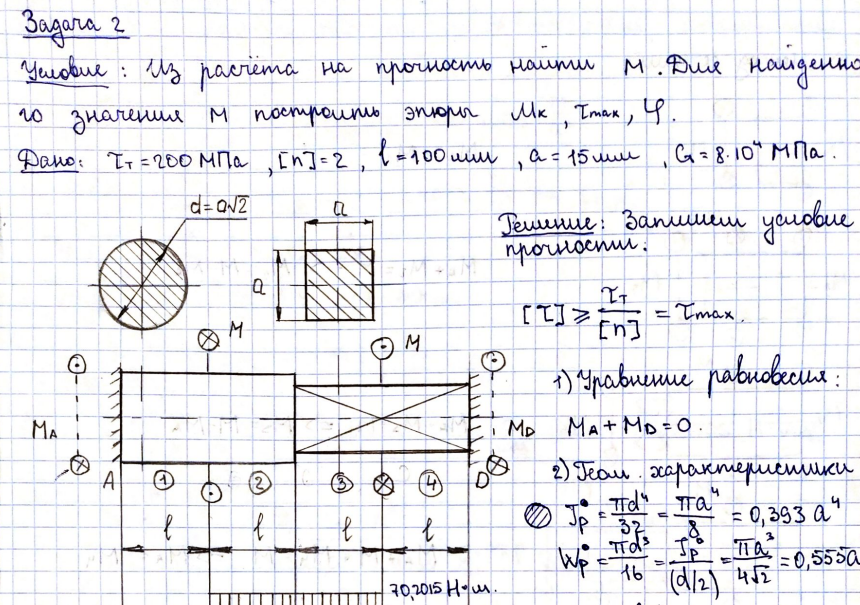 Задача 2
Условие: Из расчёта на прочность найти M. Для найденно
го значения M построить эпюры Mк, τmax, φ.
Дано: τт=200 МПа, [n]=2, l=100мм, a=15мм, G=8·10⁴ МПа.
d=a√2
a
a
Решение: Запишем условие
прочности:
[τ] ≥ τт/[n] = τmax.
M
M
1) Уравнение равновесия:
MA
MD
MA + MD = 0.
A
D
① ② ③ ④
2) Геом. характеристики
Jp = πd⁴/32 = πa⁴/8 = 0,393 a⁴
l l l l
Wp = πd³/16 = Jp/(d/2) = πa³/4√2 = 0,555a
70,2015 Н·м.